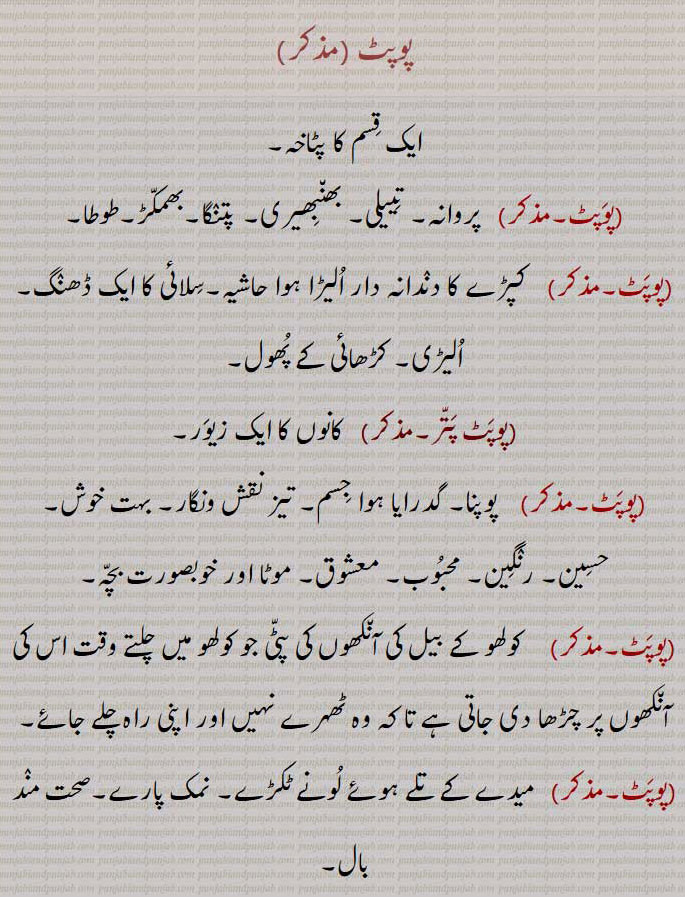 پوپٹ (مذکر)
ایک قِسم کا پٹاخہ۔
(پوَپٹ۔مذکر) پروانہ۔ تِیلی۔ بھنّبِھیری۔ پتنگا۔بھمکّڑ۔طوطا۔
(پوپَٹ۔مذکر) کپڑے کا دندانہ دار اُلیڑا ہوا حاشیہ۔سِلائی کا ایک ڈھنگ۔
اُلیڑی۔ کڑھائی کے پُھول۔
(پوپَٹ پَتّر۔مذکر) کانوں کا ایک زیوَر۔
(پوپَٹ۔مذکر) پوپنا۔ گدرایا ہوا جِسم۔ تیز نقش ونگار۔ بہت خوش۔
حسِین۔ رنگِین۔ محبُوب۔ معشوق۔ موٹا اور خوبصورت بچّہ۔
(پوپَٹ۔مذکر) کولھو کے بیل کی آنکھوں کی پٹّی جو کولھو میں چلتے وقت اس کی
آنکھوں پر چڑھا دی جاتی ہے تا کہ وہ ٹھہرے نہیں اور اپنی راہ چلے جائے۔
(پوپَٹ۔مذکر) میدے کے تلے ہوئے لُونے ٹکڑے۔ نمک پارے۔صحت مند
بال۔